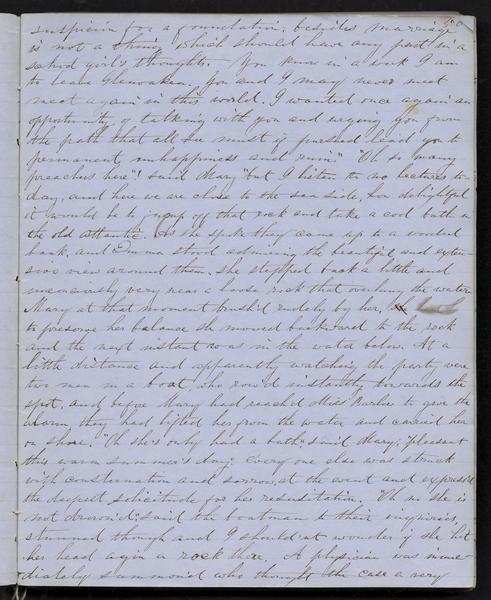 50
suspicion for a foundation, besides marriage
is not a thing which should have any part in a
school girl's thoughts. You know in a week I am
to leave Glenoaken. You and I may never meet
meet again in this world. I wanted once again an
opportunity of talking with you and urging you from
the path that all see must if pursued lead you to
permanent unhappiness and ruin." "Oh so many
preachers here"! said Mary "but I listen to no lectures to-
day, and here we are close to the sea side, how delightful
it would be to jump off that rock and take a cool bath in
the old Atlantic. As she spoke they came up to a wooded
bank, and Emma stood admiring the beautiful and exten-
sive view around them, she stepped back a little and
unconsciously very near a loose rock that overhung the water
Mary at that moment brush'd rudely by her,
to preserve her balance she moved backward to the rock
and the next instant was in the water below. At a
little distance and apparently watching the party were
two men in a boat, who row'd instantly towards the
spot, and before Mary had reached Miss Barlow to give the
alarm they had lifted her from the water and carried her
on shore. "Oh she's only had a bath", said Mary, "pleasant
this warm summer's day". Every one else was struck
with consternation and sorrow, at the event and express'd
the deepest solicitude for her resuscitation. "Oh no she is
not drown'd", said the boatman to their inquiries,
stunned though and I should'nt wonder if she hit
her head agin a rock there. A physician was imme-
diately summon'd who thought the case a very